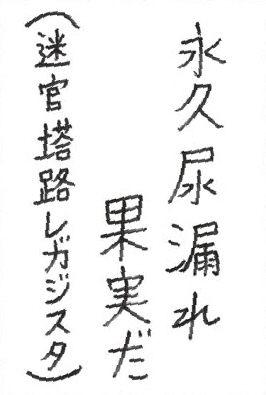 永久尿漏れ
果実だ
(迷宮塔路レガジスタ)